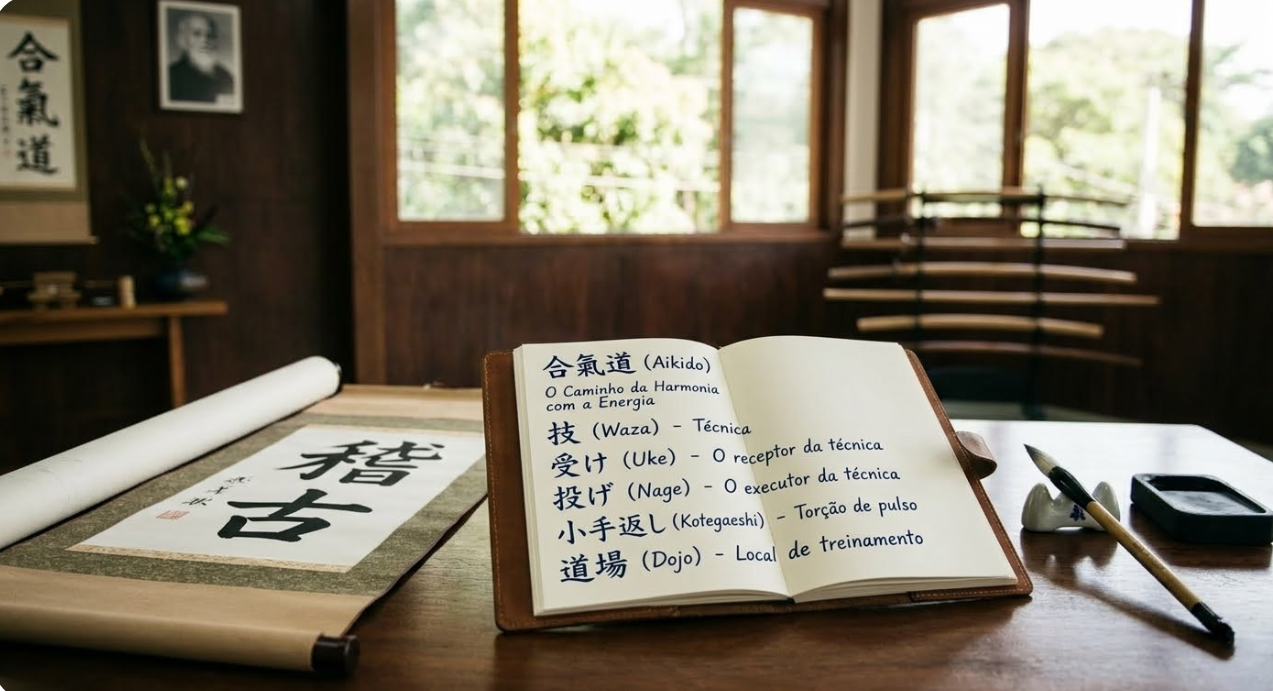 合氣道
稽古
合氣道 (Aikido)
O Caminho da Harmonia
com a Energia
技 (Waza) – Técnica
受け (Uke) – O receptor da técnica
投げ (Nage) – O executor da técnica
小手返し (Kotegaeshi) – Torção de pulso
道場 (Dojo) – Local de treinamento